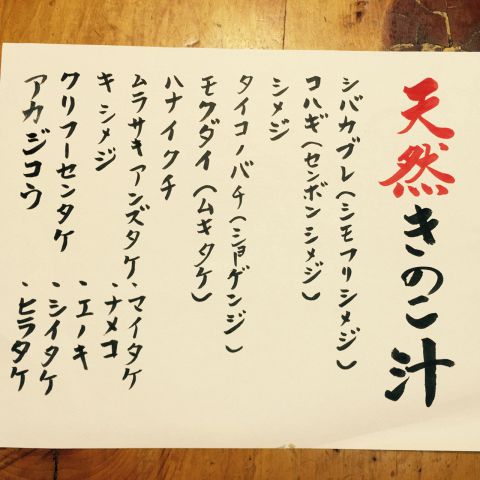 天然きのこ汁
シバカブレ(シモフリシメジ)
コハギ(センボンシメジ)
シメジ
タイコノバチ(ショゲンジ)
モクダイ(ムキタケ)
ハナイクチ
ムラサキアンズタケ
キシメジ
クリフーセンタケ
アカジコウ
・マイタケ
・ナメコ
・エノキ
・シイタケ
・ヒラタケ